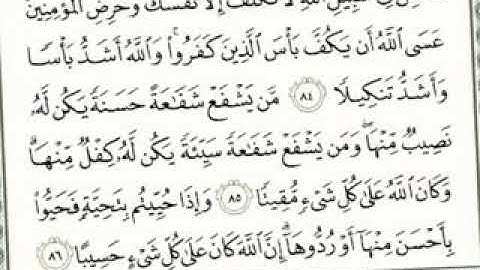 فِي سَبِيلِ ٱللَّهِ لَا تُكَلَّفُ إِلَّا نَفْسَكَ وَحَرِّضِ ٱلْمُؤْمِنِينَ
عَسَى ٱللَّهُ أَن يَكُفَّ بَأْسَ ٱلَّذِينَ كَفَرُوا۟ۚ وَٱللَّهُ أَشَدُّ بَأْسًا
وَأَشَدُّ تَنكِيلًا ٨٤ مَّن يَشْفَعْ شَفَٰعَةً حَسَنَةً يَكُن لَّهُۥ
نَصِيبٌ مِّنْهَاۖ وَمَن يَشْفَعْ شَفَٰعَةً سَيِّئَةً يَكُن لَّهُۥ كِفْلٌ مِّنْهَاۗ
وَكَانَ ٱللَّهُ عَلَىٰ كُلِّ شَىْءٍ مُّقِيتًا ٨٥ وَإِذَا حُيِّيتُم بِتَحِيَّةٍ فَحَيُّوا۟
بِأَحْسَنَ مِنْهَآ أَوْ رُدُّوهَآۗ إِنَّ ٱللَّهَ كَانَ عَلَىٰ كُلِّ شَىْءٍ حَسِيبًا ٨٦